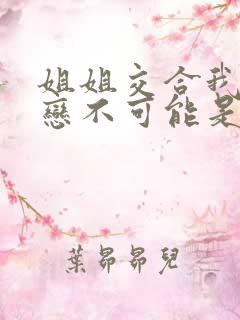 姐姐交合我
戀不可能是
葉昴昴兒